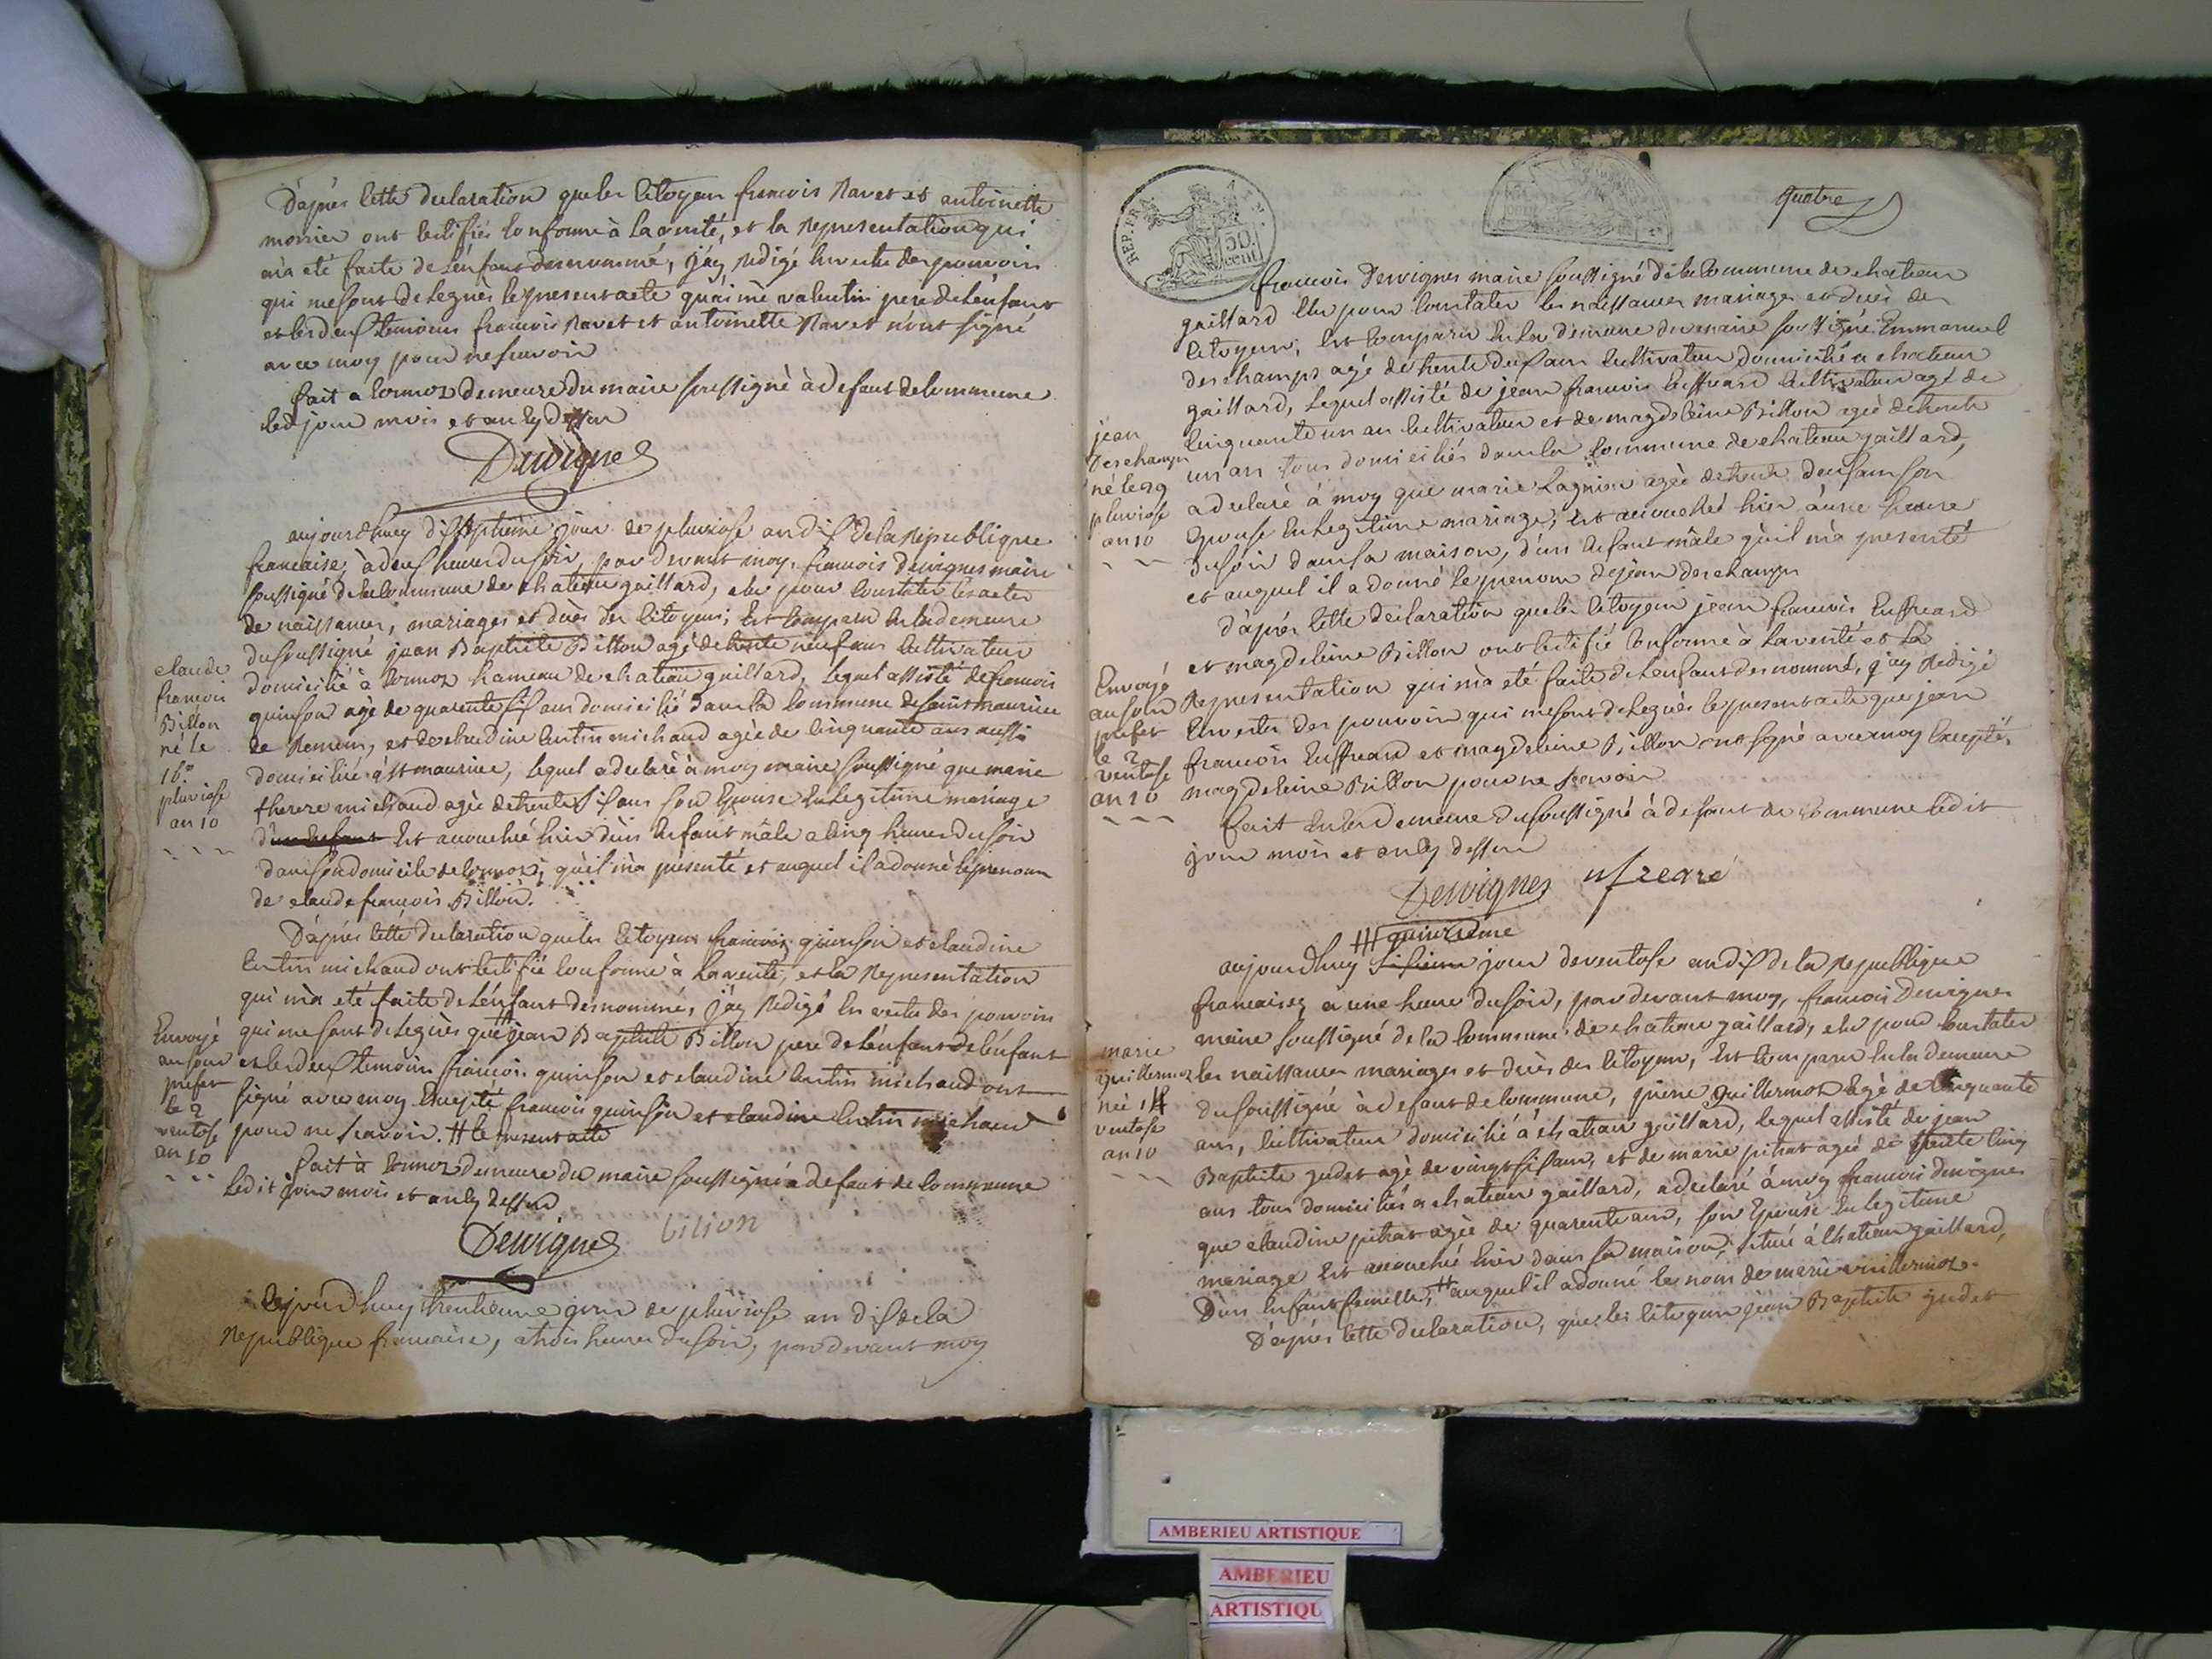 D'après cette declaration que les citoyens francois Ravet et antoinette
monier ont certifiés conforme à la verité, et la representation qui
m'a eté faite de l'énfant denommé, j'ay redigé en vertu des pouvoirs
qui me sont delegués le present acte qu'aimé valentin pere de l'énfant
et les deux temoins francois Ravet et antoinette Ravet n'ont signé
avec moy pour ne scavoir
fait a Cormoz demeure du maire soussigné à defaut de commune
led jour mois et an cy dessu
Dervignes
aujourdhuy dix septieme jour de pluviose an dix de la Republique
francaise, à deux heures du soir, par devant moy, francois dervignes maire
soussigné de la commune de chateau gaillard, elu pour constater les actes
de naissances, mariages et decés des citoyens, est comparu en la demeure
du soussigné jean Baptiste Billon agé de trente neuf ans cultivateur
domicilié à Cormoz hameau de chateau gaillard, lequel assisté de francois
quinson agé de quarente six ans domicilié dans la commune de saint maurice
de Remens, et de claudine Centin michaud agée de cinquante ans aussi
domiciliée à st maurice, lequel a declaré à moy maire soussigné que marie
therese michaud agée de trente six ans son Epouse en legitime mariage
d'un enfant est accouchée hier d'ùn enfant mâle a cinq heures du soir
dans son domicile de Cormoz, qu'il m'a présenté et auquel il a donné le prenom
de claude francois Billon.
D'après cette declaration que les citoyens francois quinson et claudine
Centin michaud ont certifié conforme à la verité, et la representation
qui m'a eté faite de l'énfant denommé, j'ay redigé en vertu des pouvoirs
qui me sont delegués # que jean Baptiste Billon pere de l'énfant de l'énfant
et les deux temoins francois quinson et claudine Centin michaud ont
signé avec moy Excepté francois quinson et claudine Centin michaud
pour ne scavoir. # le present acte
fait à Cormoz demeure du maire soussigné à defaut de commune
ledit jour mois et an cy dessu
Dervignes bilion
aujourdhuy trentieme jour de pluviose an dix de la
Republique francaise, a trois heures du soir, par devant moy
claude
francois
Billon
né le
16
pluviose
an 10
Envoyé
au sour
prefet
le 2
ventose
an 10
REP. FRA.
50.
cent.
quatre
francois Dervignes maire soussigné de la commune de chateau
gaillard elu pour constater les naissances mariages et decés des
citoyens; est comparu en la demeure du maire soussigné Emmanuel
deschamps agé de trente deux ans cultivateur domicilié a chateau
gaillard, lequel assisté de jean francois cultivateur agé de
cinquante un an cultivateur et de magdeleine Billon agée de trente
un an tous domiciliés dans la commune de chateau gaillard,
a declaré à moy que marie Lagnion agée de trente deux ans son
Epouse en legitime mariage, est accouchée hier à une heure
du soir dans sa maison, d'un enfant mâle qu'il m'à presenté
et auquel il a donné le prenom de jean deschamps
d'après cette declaration que les citoyens jean francois
et magdeleine Billon ont certifié conforme à la verité et la
Representation qui m'à eté faite de l'enfant denommé, j'ay redigé
En vertu des pouvoirs qui me sont delegués le present acte que jean
francois et magdeleine Billon ont signé avec moy Excepté
magdeleine Billon pour ne scavoir
fait en la demeure du soussigné à defaut de commune ledit
jour mois et an cy dessu
Dervignes
jean
Deschamps
né le 29
pluviose
an 10
Envoyé
au sour
prefet
le 2
ventose
an 10
# quinzieme
aujourdhuy sixieme jour de ventose an dix de la Republique
francaise, a une heure du soir, par devant moy, francois Dervignes
maire soussigné de la commune de chateau gaillard, elu pour constater
les naissances mariages et decés des citoyens, est comparu en la demeure
du soussigné à defaut de commune, piere guillermoz agé de cinquante
ans, cultivateur domicilié à chateau gaillard, lequel assisté de jean
Baptiste judet agé de vingt six ans, et de marie pitrat agée de trente cinq
ans tous domiciliés a chateau gaillard, a declaré à moy francois dervignes
que claudine pitrat agée de quarente ans, son Epouse en legitime
mariage est accouchée hier dans sa maison, située à chateau gaillard,
D'un enfant femelle, # auquel il a donné le nom de marie guillermoz.
D'après cette declaration, que les citoyens jean Baptiste judet
marie
guillermoz
née 14
ventose
an 10
AMBERIEU ARTISTIQUE
AMBERIEU
ARTISTIQU